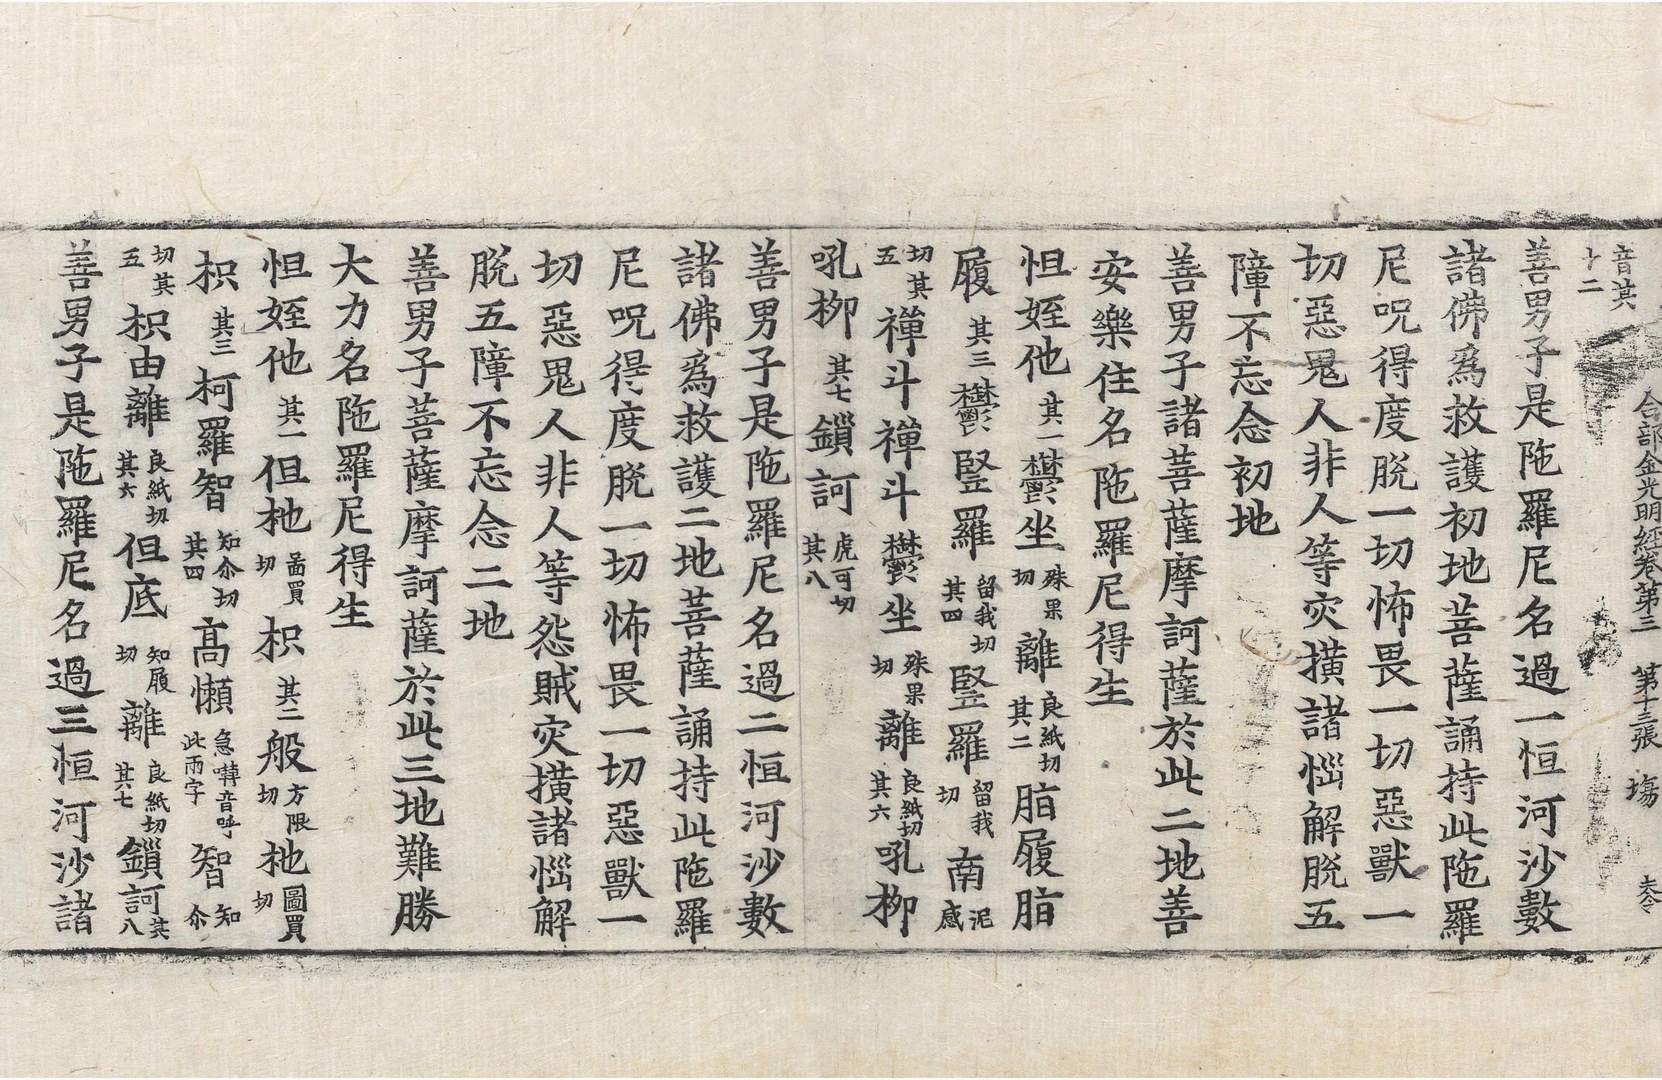 合部金光明經卷第三　第十三張　塲
音其十二
善男子是陁羅尼名過一恒河沙數
諸佛爲救護初地菩薩誦持此陁羅
尼呪得度脫一切怖畏一切惡獸一
切惡鬼人非人等灾撗諸惱解脫五
障不忘念初地
善男子諸菩薩摩訶薩於此二地善
安樂住名陁羅尼得生
怛姪他其一鬱坐殊果切離良紙切其二脂履脂
履其三鬱竪羅留我切其四竪羅留我切南泥感
切其五禪斗禪斗鬱坐殊果切離良紙切其六吼柳
吼柳其七鎖訶虎可切其八
善男子是陁羅尼名過二恒河沙數
諸佛爲救護二地菩薩誦持此陁羅
尼呪得度脫一切怖畏一切惡獸一
切惡鬼人非人等怨賊灾撗諸惱解
脫五障不忘念二地
善男子菩薩摩訶薩於此三地難勝
大力名陁羅尼得生
怛姪他其一但杝啚買切枳其二般方限切杝圖買切
枳其三柯羅智知尒切其四高懶急囀音呼此兩字智知尒
切其五枳由離良紙切其六但底知履切離良紙切其七鎖訶其八
善男子是陁羅尼名過三恒河沙諸